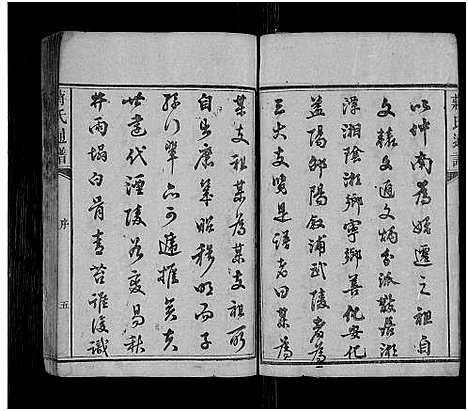 以仲南為始遷之祖自
文轅文通文炳分派散居湘
潭湘陰湘鄉寧鄉善化安化
益陽邵陽敘浦武陵者為
三大支覽是譜者曰某為
某支祖某為某支祖所
自出廉葉昭穆明而子
孫门單亦可遞推矣夫
世遠代湮陵谷變易秋
井雨塌白骨青苔誰復識
蔣氏通譜
序
五
蔣氏通譜